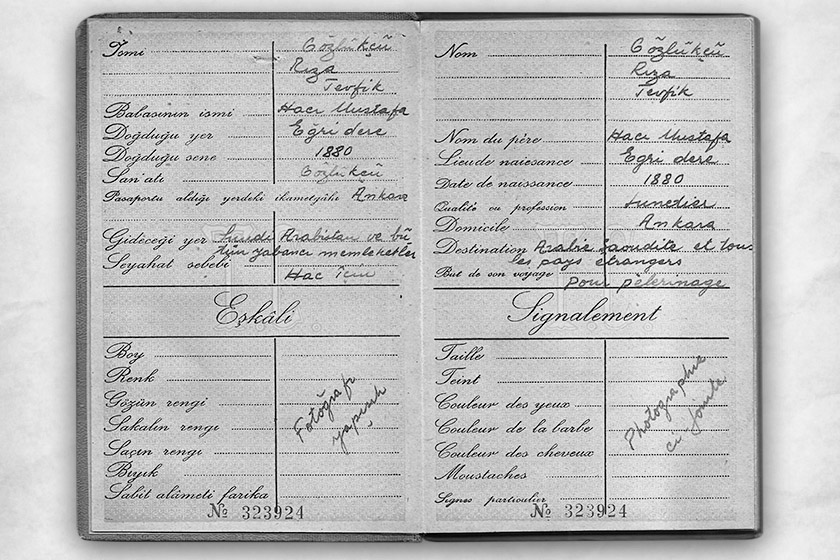 İsmi Gözlükçü
Rıza
Tevfik
Babasının ismi Hacı Mustafa
Doğduğu yer Eğri dere
Doğduğu sene 1880
San'atı Gözlükçü
Pasaportu aldığı yerdeki ikametgâhı Ankara
Gideceği yer Suudi Arabistan ve bü
tün yabancı memleketler
Seyahat sebebi Hac için
Eşkâli
Boy
Renk
Gözün rengi
Sakalın rengi
Saçın rengi
Bıyık
Sabit alâmeti farika
Fotoğrafı
yapışık
№ 323924
Nom Gözlükçü
Rıza
Tevfik
Nom du père Hacı Mustafa
Lieu de naissance Eğri dere
Date de naissance 1880
Qualité ou profession Lunedier
Domicile Ankara
Destination Arabie Saoudite et tous
les pays étrangers
But de son voyage pour pèlerinage
Signalement
Taille
Teint
Couleur des yeux
Couleur de la barbe
Couleur des cheveux
Moustaches
Signes particulier
Photographie
ci jointe
№ 323924